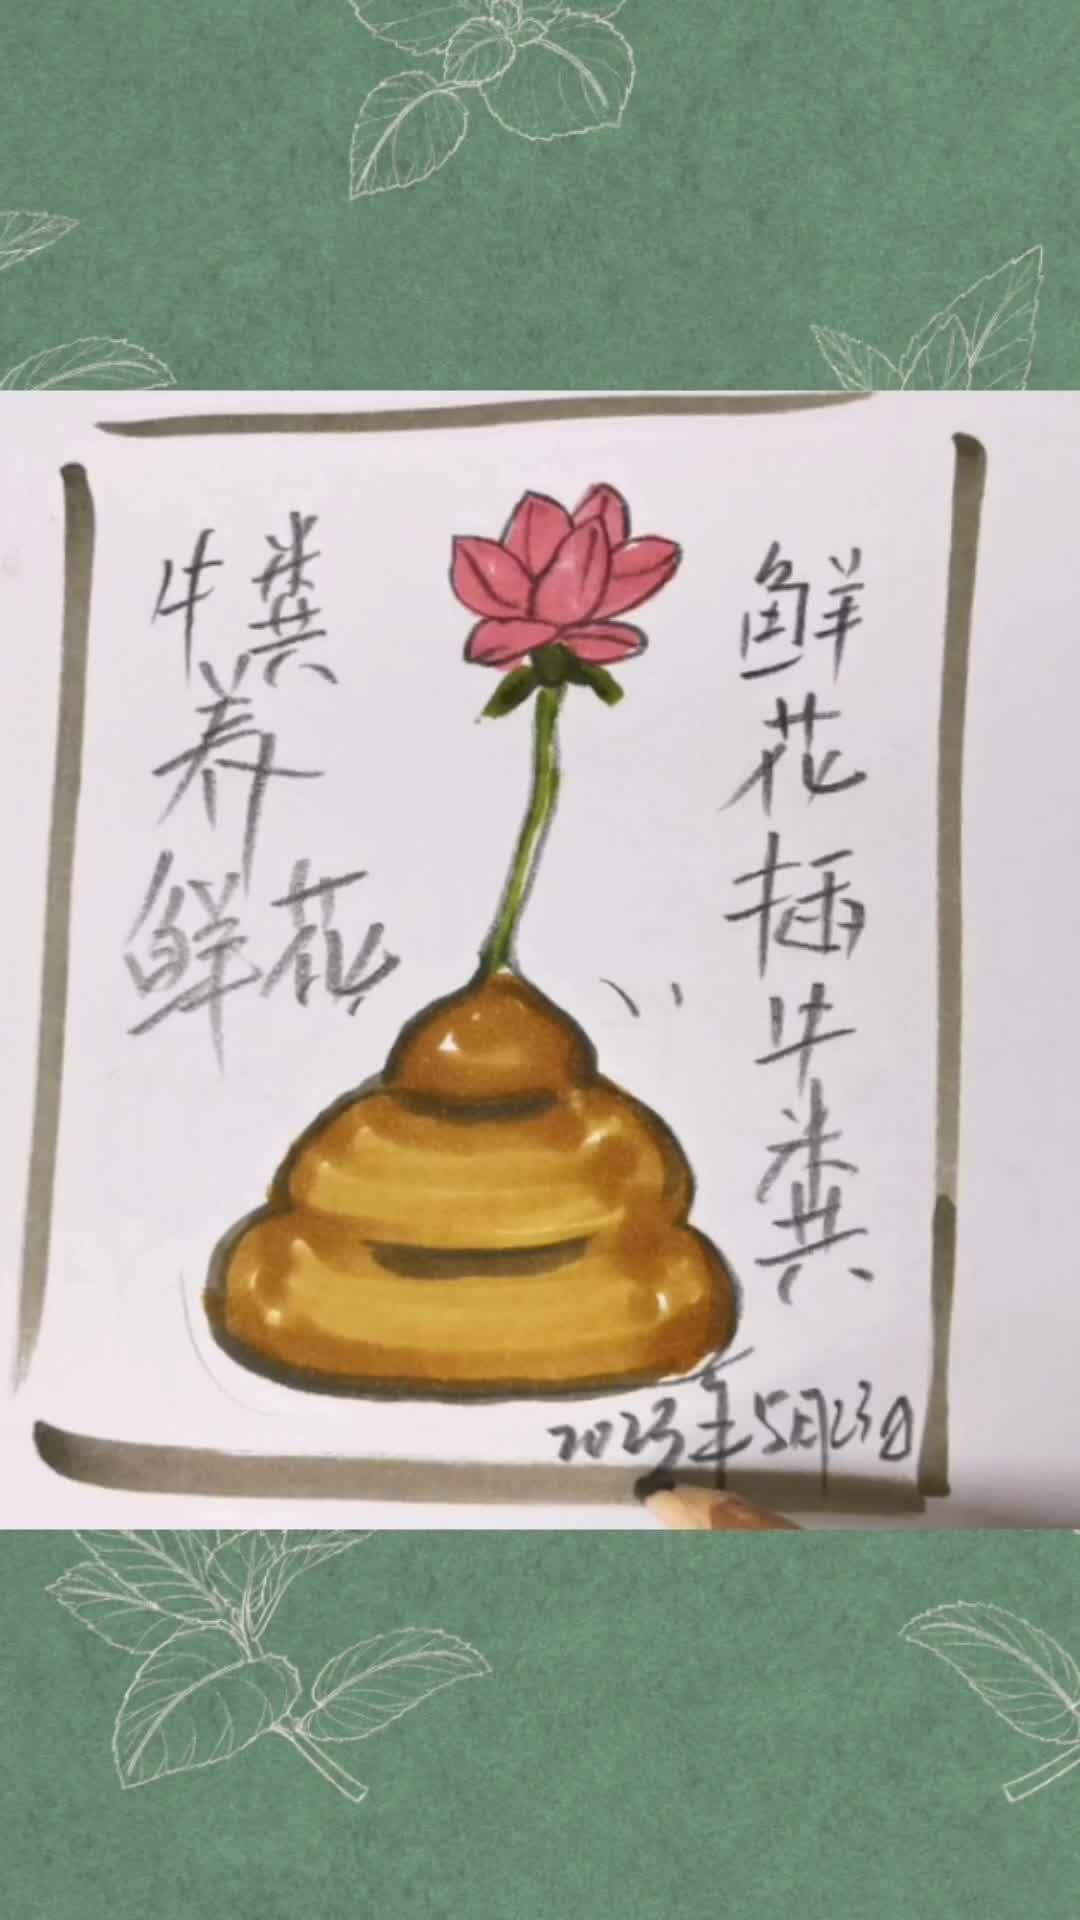 鲜花插牛粪
牛粪
养
鲜花
2023年5月23日